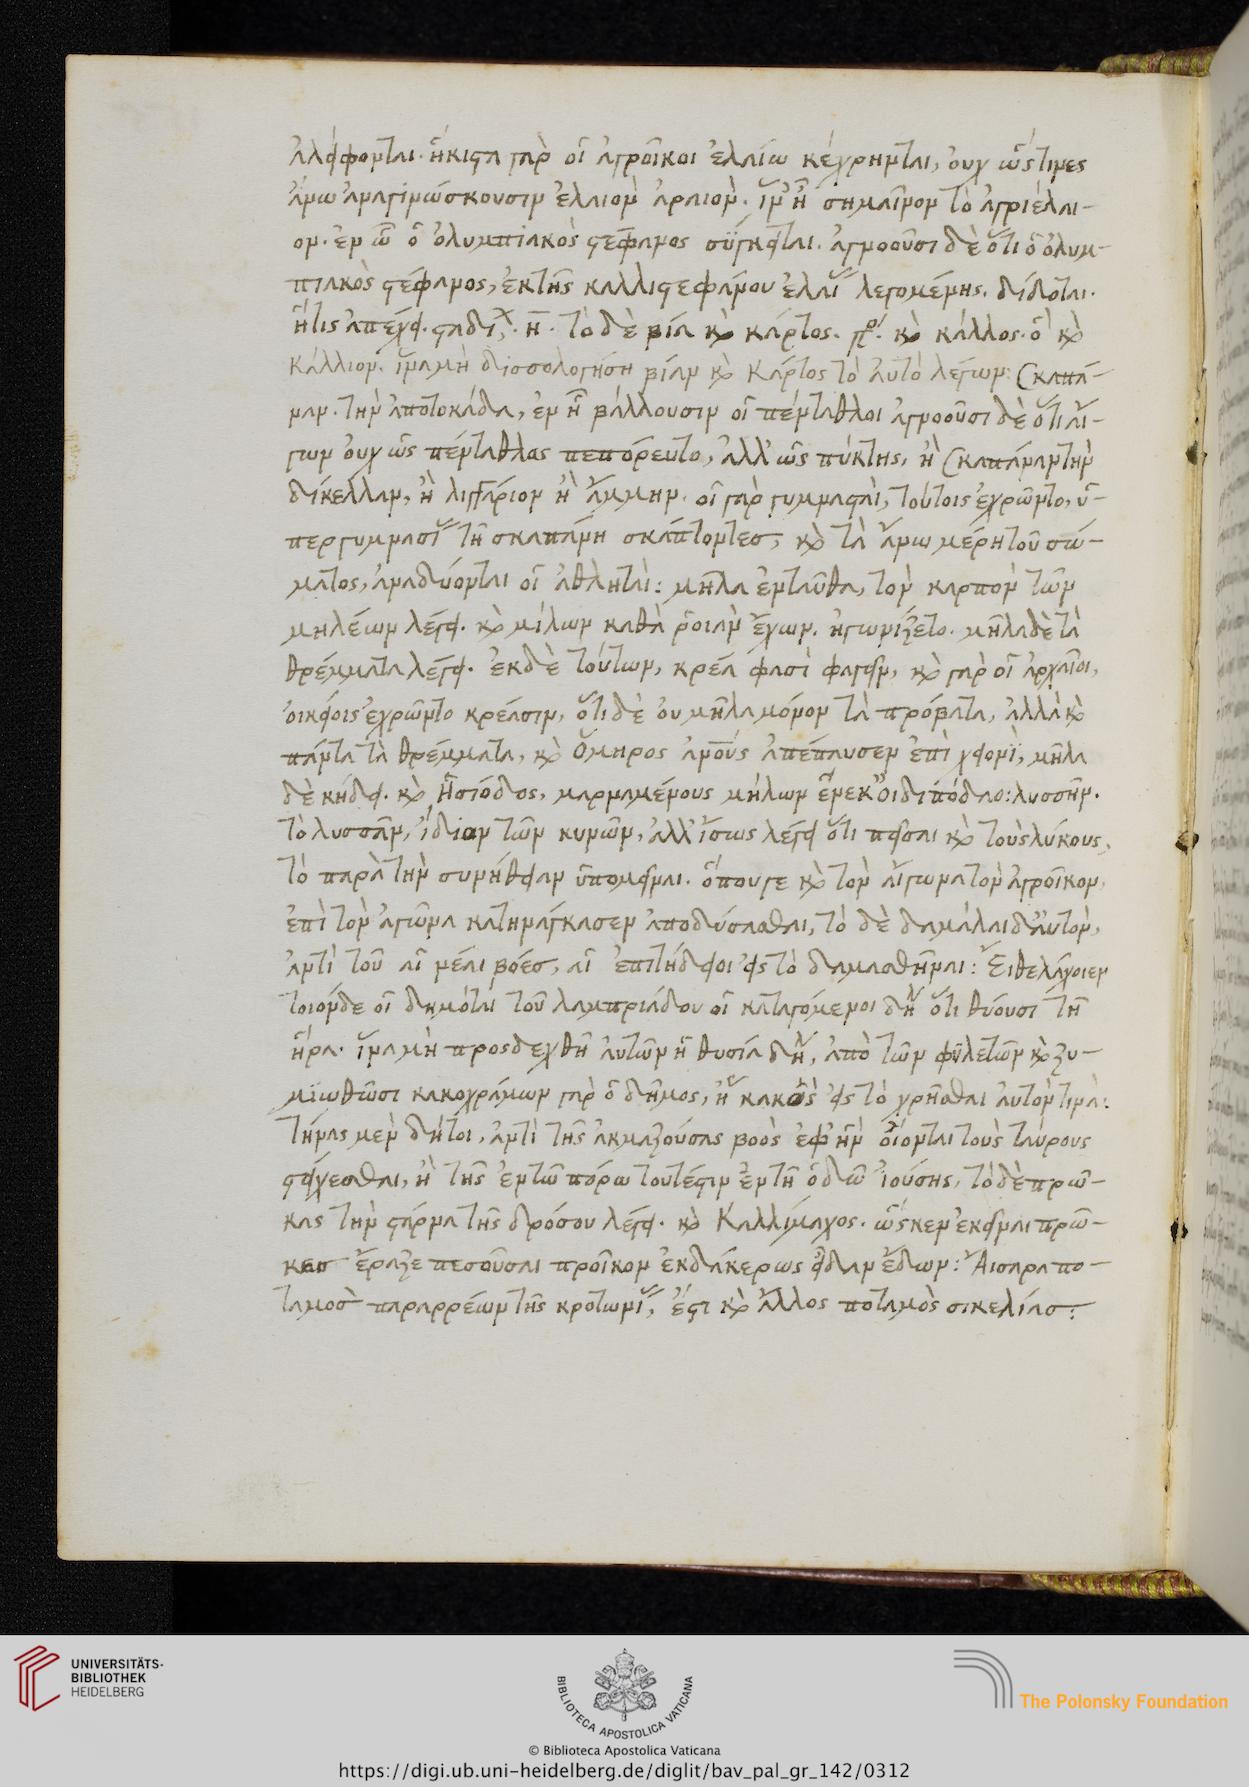 ἀλείφονται. ἥκιστα γὰρ οἱ ἀγροῖκοι ἐλαίω κέχρηνται, οὐχ ὥς τινες
ἄνω ἀναγινώσκουσιν ἔλαιον ἀραιὸν. ἵν ἦ σημαῖνον τὸ ἀγριέλαι-
ον. ἐν ὧ ὁ ὀλυμπιακὸς στέφανος σύγκειται. ἀγνοοῦσι δὲ ὅτι ὁ ὀλυμ-
πιακὸς στέφανος, ἐκ τῆς καλλιστεφάνου ἐλαί λεγομένης. δίδοται.
ἥτις ἀπέχει. σταδι. η. τὸ δὲ βία καὶ κάρτος. γρ. καὶ κάλλος. ὃ καὶ
κάλλιον. ἵνα μὴ δισσολογήση βίαν καὶ κάρτος τὸ αὐτὸ λέγων: Σκαπά-
ναν. τὴν ἀποτοκάδα, ἐν ἧ βάλλουσιν οἱ πένταθλοι ἀγνοοῦσι δὲ ὅτι αἴ-
γων οὐχ ὡς πένταθλος πεπόρευτο, ἀλλ' ὡς πύκτης, ἢ Σκαπάναν τὴν
δίκελλαν, ἢ λισγάριον ἢ ἄμμην. οἱ γὰρ γυμνασταὶ, τούτοις ἐχρῶντο, ὑ-
περγυμνασι τῆ σκαπάνη σκάπτοντες, καὶ τὰ ἄνω μέρη τοῦ σώ-
ματος, ἀναδύονται οἱ ἀθληταὶ: μῆλα ἐνταῦθα, τὸν καρπὸν τῶν
μηλέων λέγει. καὶ μίλων καθὰ ῥοιὰν ἔχων. ἠγωνίζετο. μῆλα δὲ τὰ
θρέμματα λέγει. ἐκ δὲ τούτων, κρέα φασὶ φαγεῖν, καὶ γὰρ οἱ ἀρχαῖοι,
οἰκείοις ἐχρῶντο κρέασιν, ὅτι δὲ οὐ μῆλα μόνον τὰ πρόβατα, ἀλλὰ καὶ
πάντα τὰ θρέμματα, καὶ Ὅμηρος ἀμοῦς ἀπέπαυσεν ἐπὶ χθονὶ, μῆλα
δὲ κήδει. καὶ Ἡσίοδος, μαρναμένους μήλων ἕνεκ' Οἰδιπόδαο: λυσσῆν.
τὸ λυσσᾶν, ἴδιον τῶν κυνῶν, ἀλλ' ἴσως λέγει ὅτι πεῖσαι καὶ τοὺς λύκους,
τὸ παρὰ τὴν συνήθειαν ὑπομεῖναι. ὅπου γε καὶ τὸν αἴγωνα τὸν ἀγροῖκον,
ἐπὶ τὸν ἀγῶνα κατηνάγκασεν ἀποδύσασθαι, τὸ δὲ δαμάλαι δ' αὐτὸν,
ἀντὶ τοῦ αἱ νέαι βόες, αἱ ἐπιτήδειοι εἰς τὸ δαμασθῆναι: Εἴθε λάχοιεν
τοιόνδε οἱ δημόται τοῦ λαμπριάδου οἱ καταγόμενοι δὴ ὅτι θύουσι τῆ
ἥρα. ἵνα μὴ προσδεχθῆ αὐτῶν ἡ θυσία δὴ, ἀπὸ τῶν φυλετῶν καὶ ζη-
μιωθῶσι κακοχράμων γὰρ ὁ δῆμος, ἢ κακὸς εἰς τὸ χρῆσθαι αὐτὸν τινὰ:
Τήνας μὲν δήτοι, ἀντὶ τῆς ἀκμαζούσας βοὸς ἐφ' ἣν οἴονται τοὺς ταύρους
στείχεσθαι, ἢ τῆς ἐν τῶ πόρω τουτέστιν ἐν τῆ ὁδῶ ἰούσης, τὸ δὲ πρῶ-
κας τὴν στάγμα τῆς δρόσου λέγει. καὶ Καλλίμαχος. ὥς κεν ἐκεῖναι πρῶ-
κες ἔραζε πεσοῦσαι προῖκον ἐκ δάκερως εἶδαρ ἔδων: Αἴσαρα πο-
ταμὸς παραρρέων τῆς κροτωνι, ἔστι καὶ ἄλλος ποταμὸς σικελίας:
UNIVERSITÄTS-
BIBLIOTHEK
HEIDELBERG
BIBLIOTECA APOSTOLICA VATICANA
The Polonsky Foundation
© Biblioteca Apostolica Vaticana
https://digi.ub.uni-heidelberg.de/diglit/bav_pal_gr_142/0312